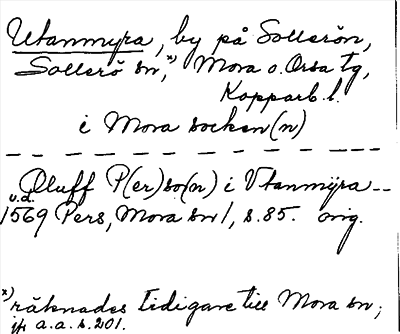 Utanmyra, by på Sollerön,
Sollerö sn,x) Mora o. Orsa tg,
Kopparb. l.
i Mora socken(n)
Oluff P(er)so(n) i Vtanmÿra --
u.d.
/1569 Pers, Mora sn/, s. 85. orig.
x) räknades tidigare till Mora sn;
jfr a.a. s. 201.